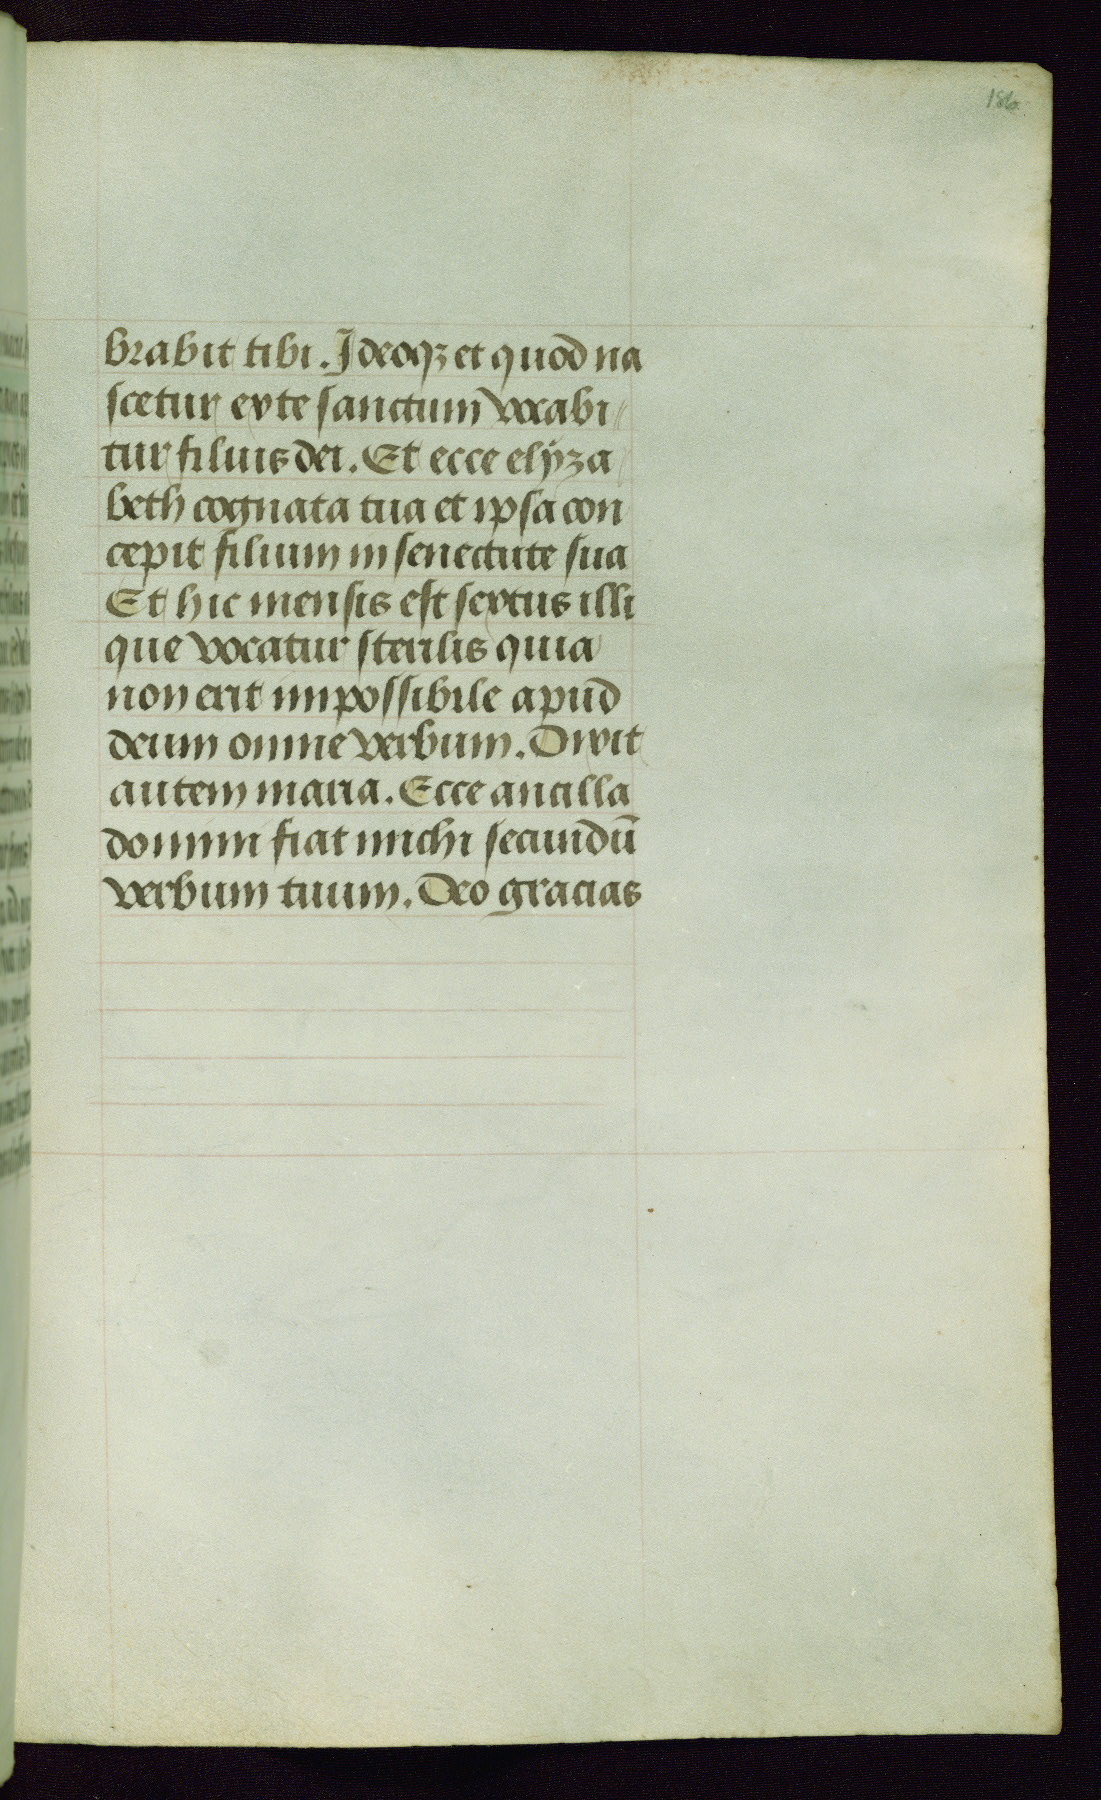 186
brabit tibi. Ideoqꝫ et quod na
scetur ex te sanctum vocabi
tur filius dei. Et ecce elyza
beth cognata tua et ipsa con
cepit filium in senectute sua
Et hic mensis est sextus illi
que vocatur sterilis quia
non erit impossibile apud
deum omne verbum. Dixit
autem maria. Ecce ancilla
domini fiat michi secundū
verbum tuum. Deo gracias